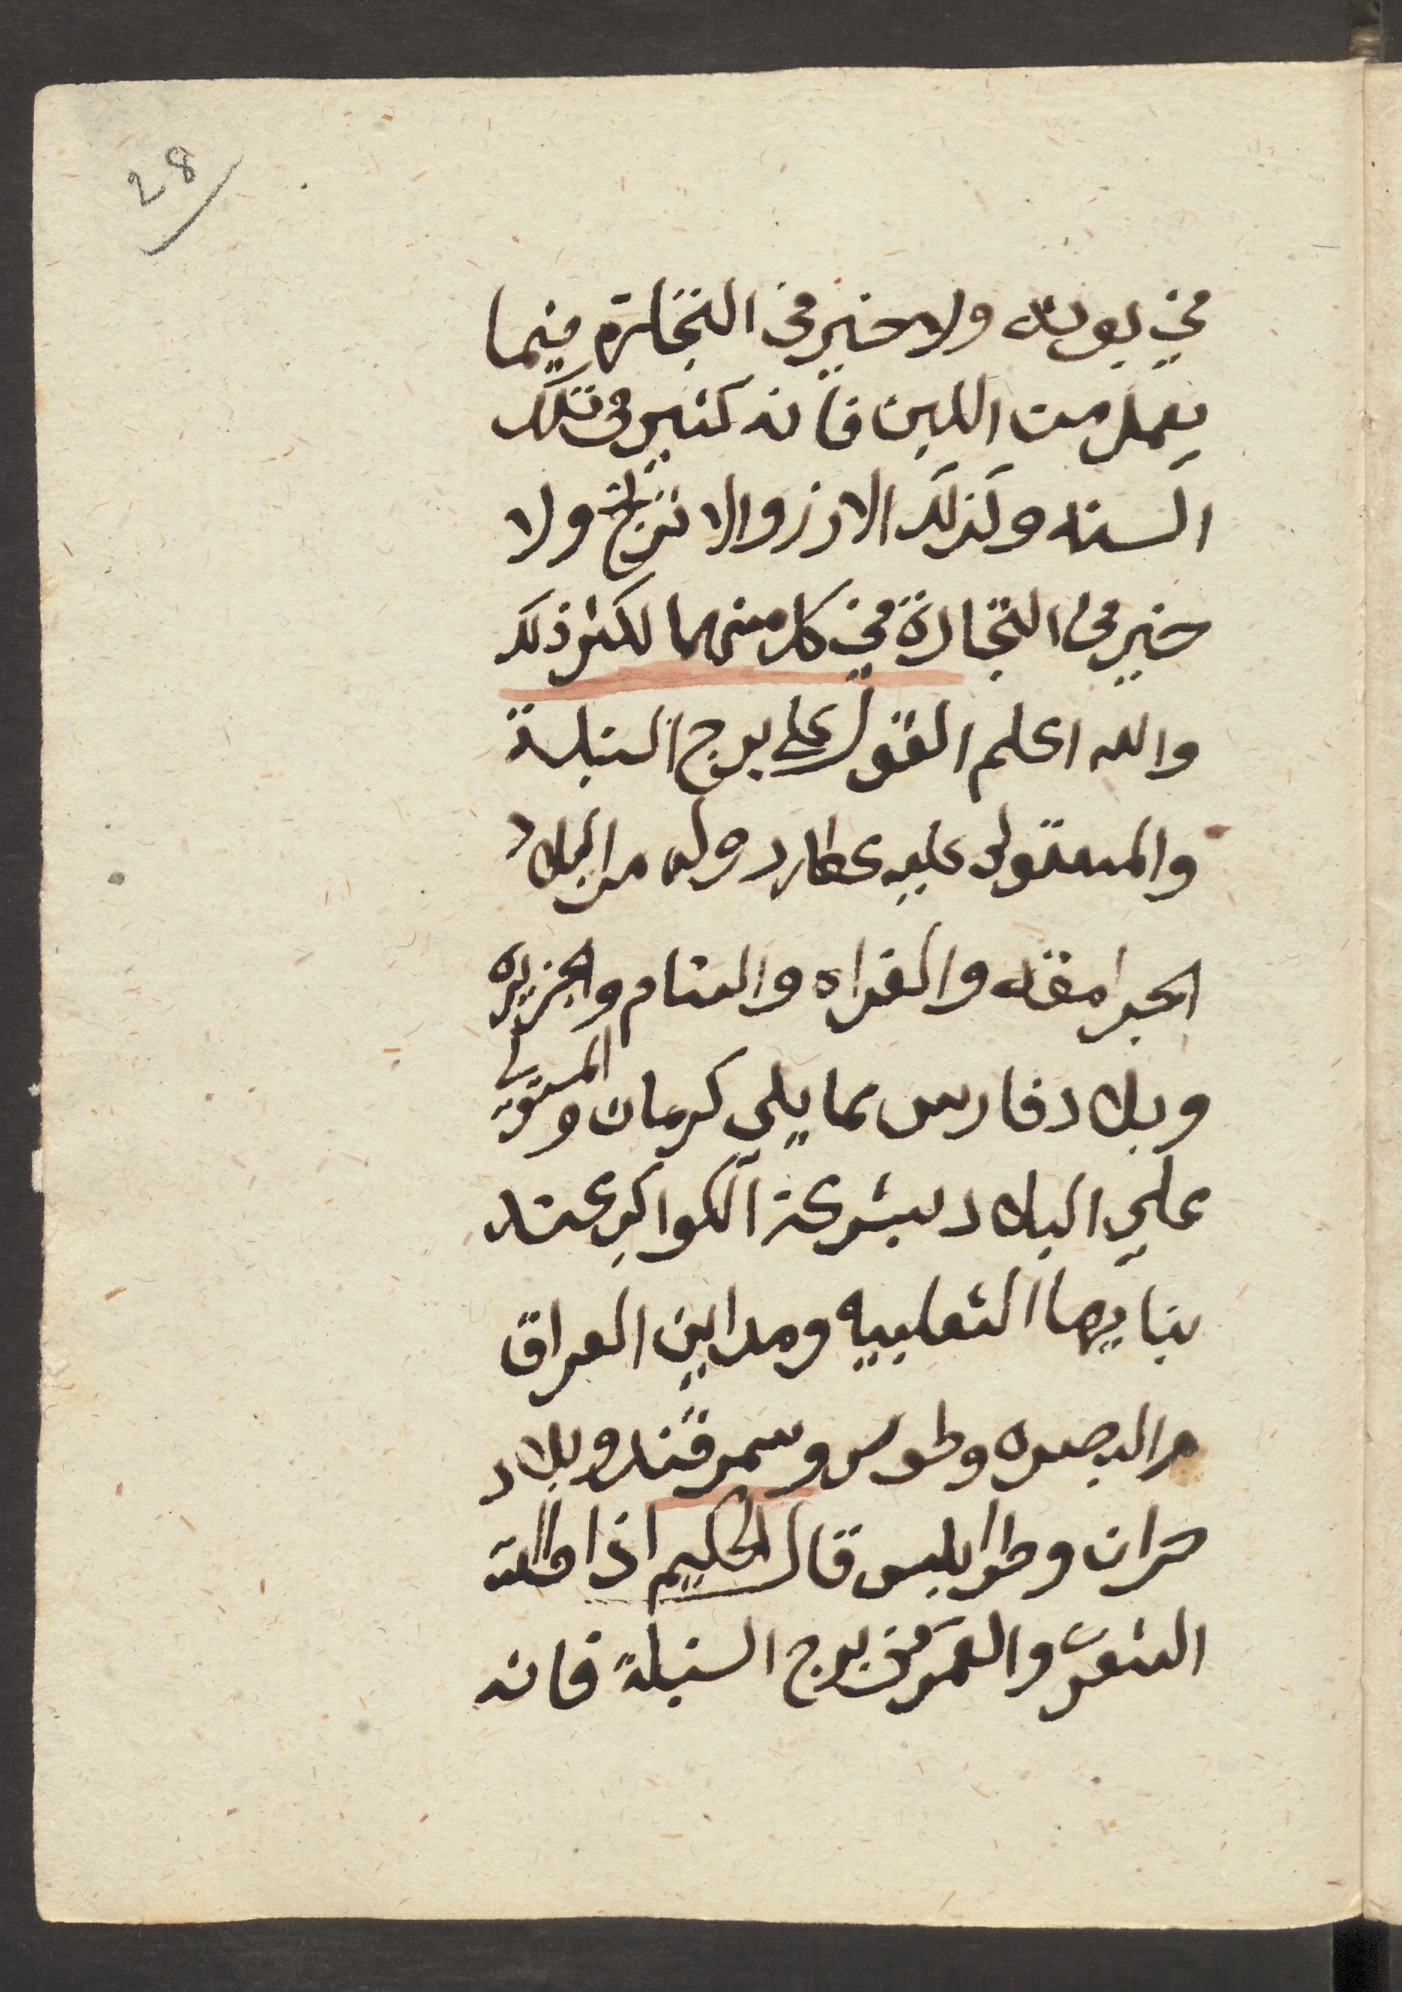 28
في بونه ولا خير في التجارة فيما
يعمل من اللبن فانه كثير في تلك
السنه وكذلك الارز والاترنج ولا
خير في التجارة في كل منهما لكثر ذلك
والله اعلم القول على برج السنبلة
والمستولى عليه عطارد وله من البلاد
الجرامقه والفراه والشام والجزيره
وبلاد فارس مما يلي كرمان والمستولى
علي البلاد بشركة الكواكب عند
بنايها الثعلبيه ومداين العراق
والبصره وطوس وسمرقند وبلاد
حران وطرابلس قال الحكيم اذا طلعت
الشعرى والقمر في برج السنبلة فانه